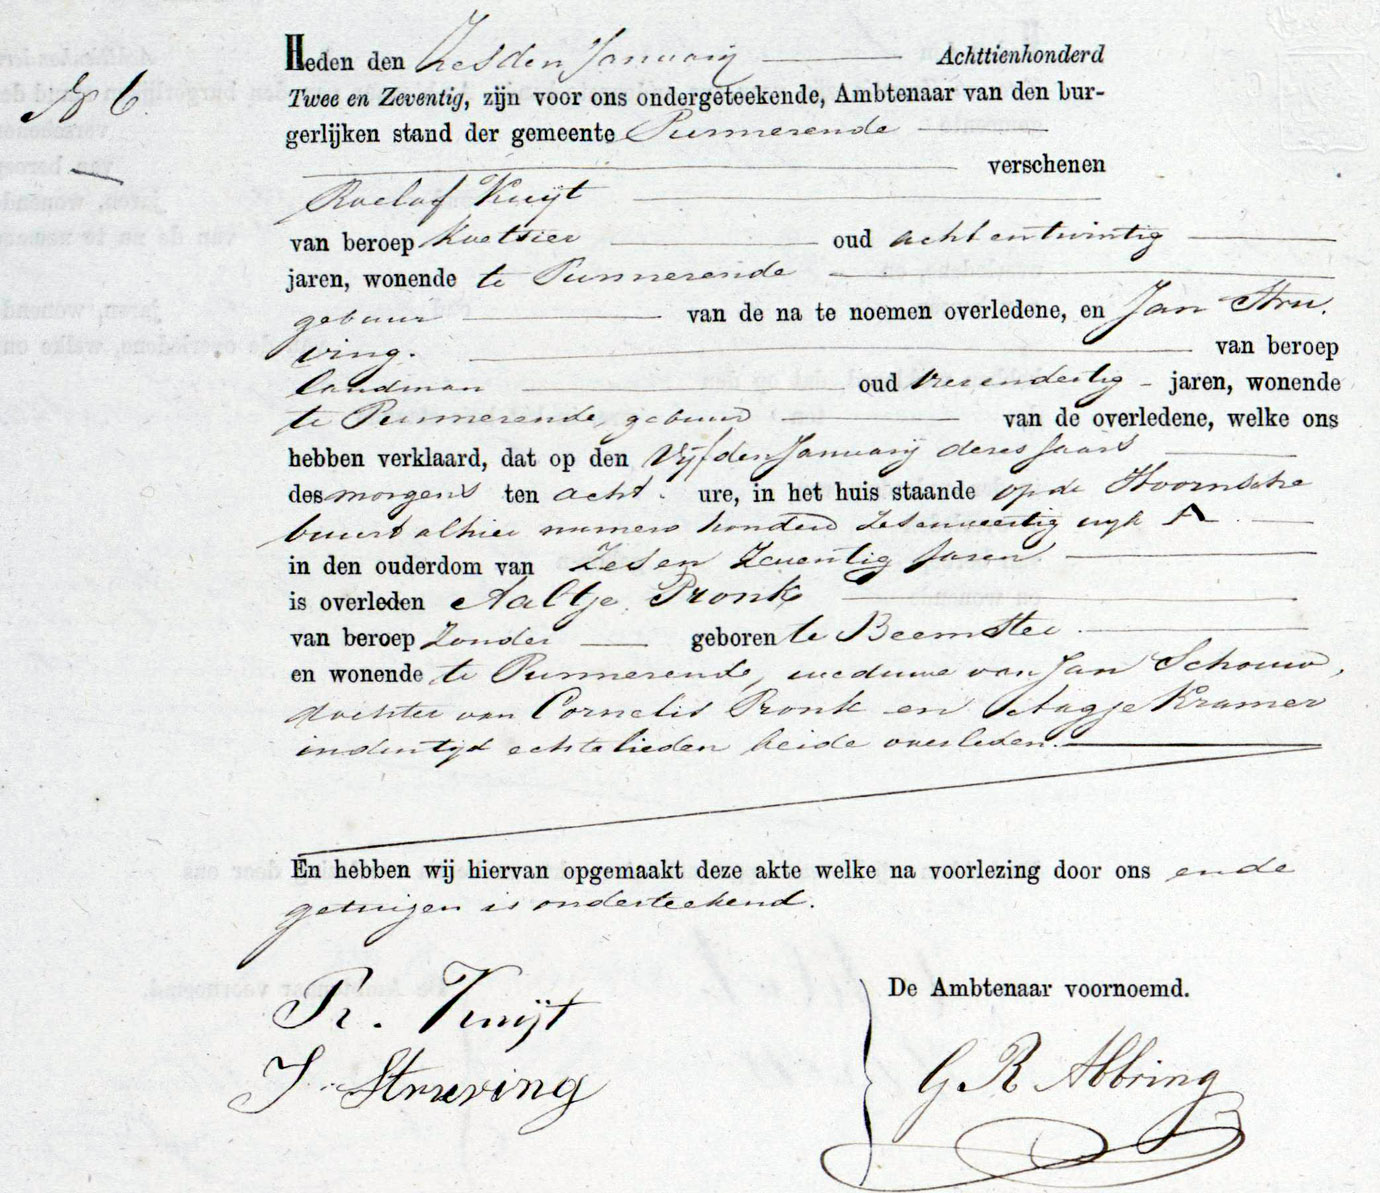 N 6.
Heden den Zesden Januarij Achttienhonderd
Twee en Zeventig, zijn voor ons ondergeteekende, Ambtenaar van den bur-
gerlijken stand der gemeente Purmerende
verschenen
Roelof Kuijt
van beroep Koetsier oud achtentwintig
jaren, wonende te Purmerende
gebuur van de na te noemen overledene, en Jan Stru
ving. van beroep
landman oud tweeendertig jaren, wonende
te Purmerende, gebuur van de overledene, welke ons
hebben verklaard, dat op den Vijfden Januarij dezes Jaars
des morgens ten acht ure, in het huis staande op de Hoornsche
buurt alhier numero honderd zesenveertig wijk A
in den ouderdom van Zes en Zeventig Jaren
is overleden Aaltje Pronk
van beroep Zonder geboren te Beemster
en wonende te Purmerende, weduwe van Jan Schouw,
dochter van Cornelis Pronk en Aagje Kramer
indertijd echtelieden beide overleden.
En hebben wij hiervan opgemaakt deze akte welke na voorlezing door ons en de
getuigen is onderteekend.
De Ambtenaar voornoemd.
R. Kuijt
J. Struving
G R Abbring